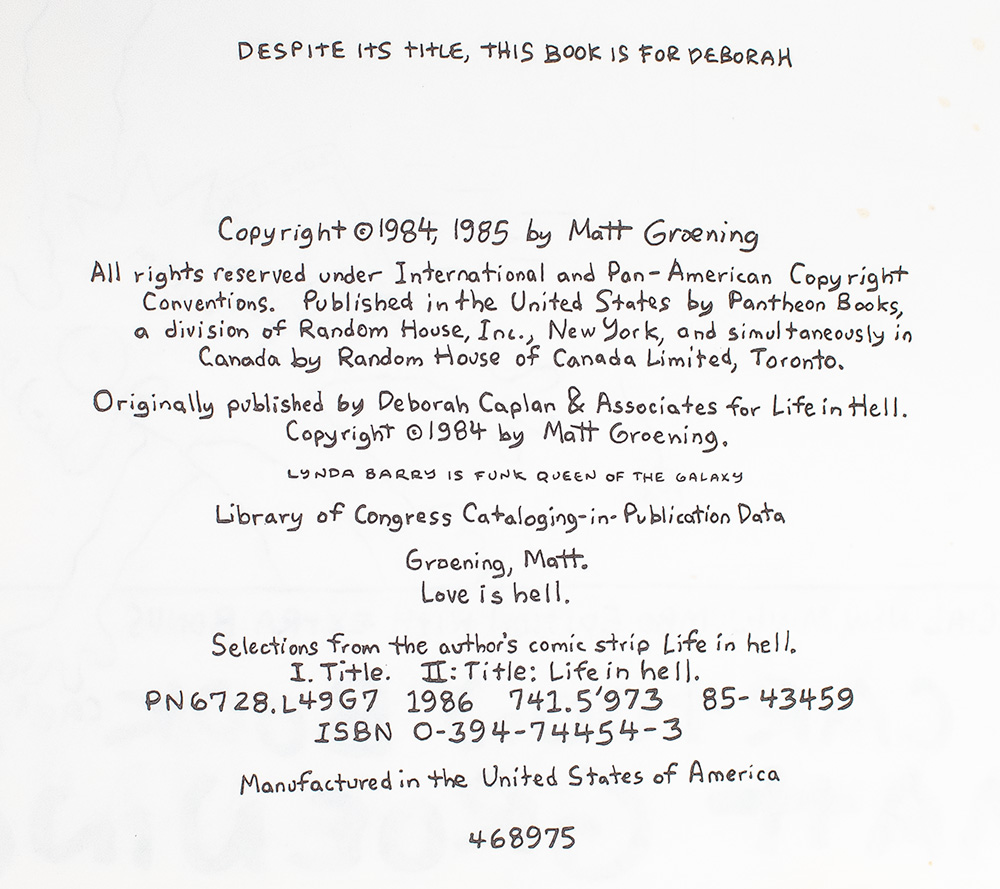 DESPITE ITS TITLE, THIS BOOK IS FOR DEBORAH
Copyright ©1984, 1985 by Matt Groening
All rights reserved under International and Pan-American Copyright
Conventions. Published in the United States by Pantheon Books,
a division of Random House, Inc., New York, and simultaneously in
Canada by Random House of Canada Limited, Toronto.
Originally published by Deborah Caplan & Associates for Life in Hell.
Copyright ©1984 by Matt Groening.
LYNDA BARRY IS FUNK QUEEN OF THE GALAXY
Library of Congress Cataloging-in-Publication Data
Groening, Matt.
Love is hell.
Selections from the author's comic strip Life in hell.
I. Title. II: Title: Life in hell.
PN6728.L49G7 1986 741.5'973 85-43459
ISBN 0-394-74454-3
Manufactured in the United States of America
468975